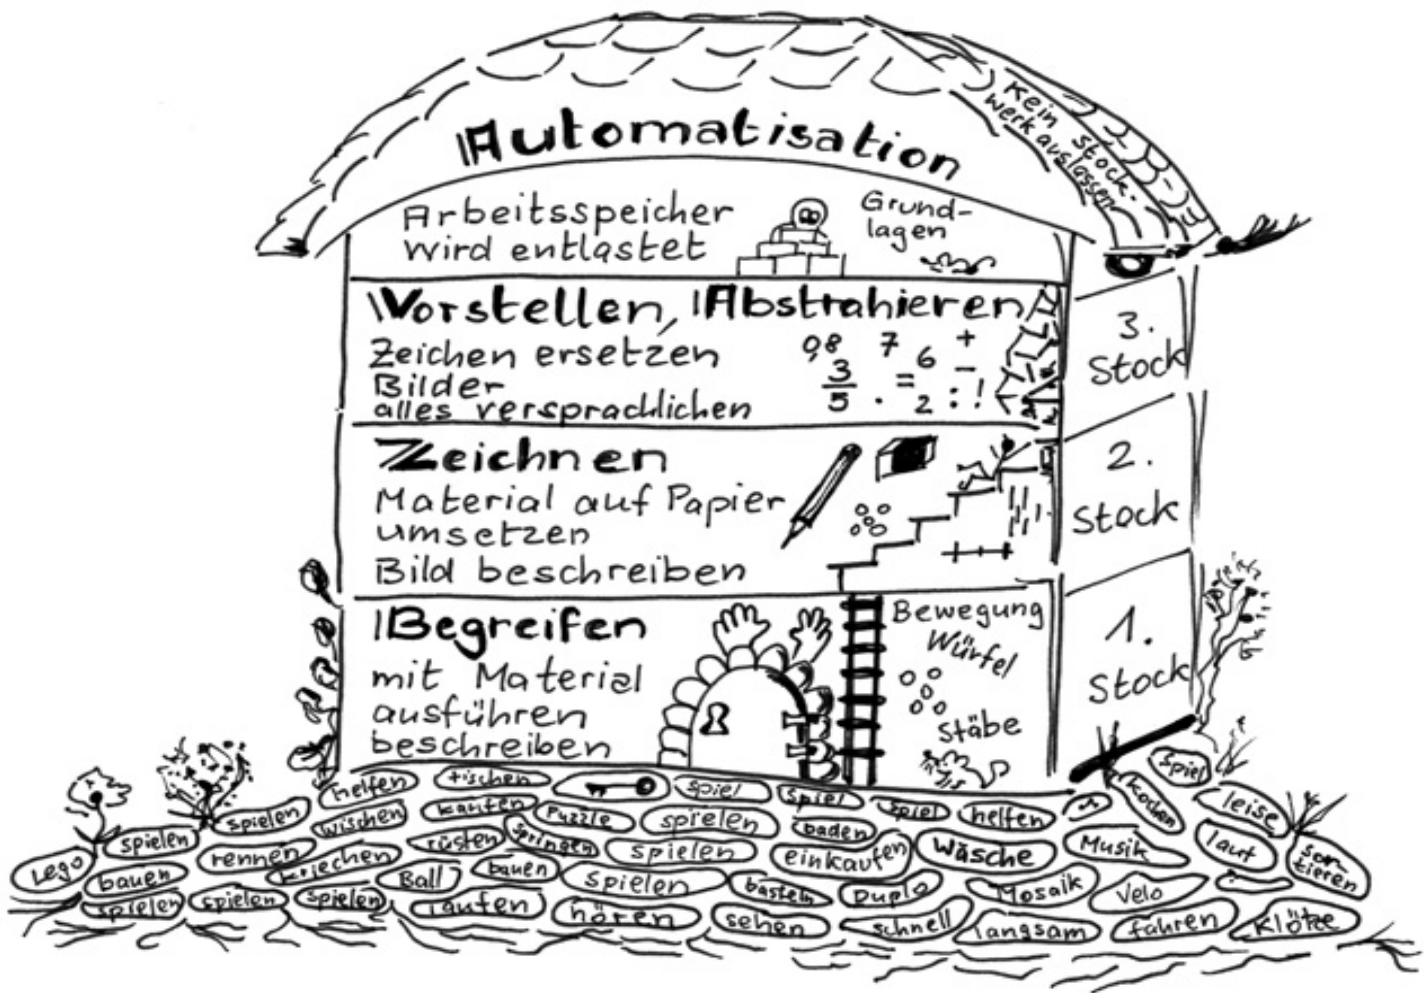 Automatisation
Kein Stock-
werk auslassen!
Arbeitsspeicher
wird entlastet
Grund-
lagen
Vorstellen, Abstrahieren
Zeichen ersetzen
Bilder
alles versprachlichen
0,8 7 6 +
3/5 . = 2 : - !
3.
Stock
Zeichnen
Material auf Papier
umsetzen
Bild beschreiben
2.
Stock
Begreifen
mit Material
ausführen
beschreiben
Bewegung
Würfel
Stäbe
1.
Stock
helfen tischen spiel spiel spiel helfen kochen spiel leise
spielen spielen wischen kaufen Puzzle spielen baden
Lego rennen kriechen rüsten springen spielen einkaufen Wäsche Musik laut sor-
tieren
bauen Ball bauen spielen basteln Duplo Mosaik Velo
spielen spielen spielen laufen hören sehen schnell langsam fahren Klötze